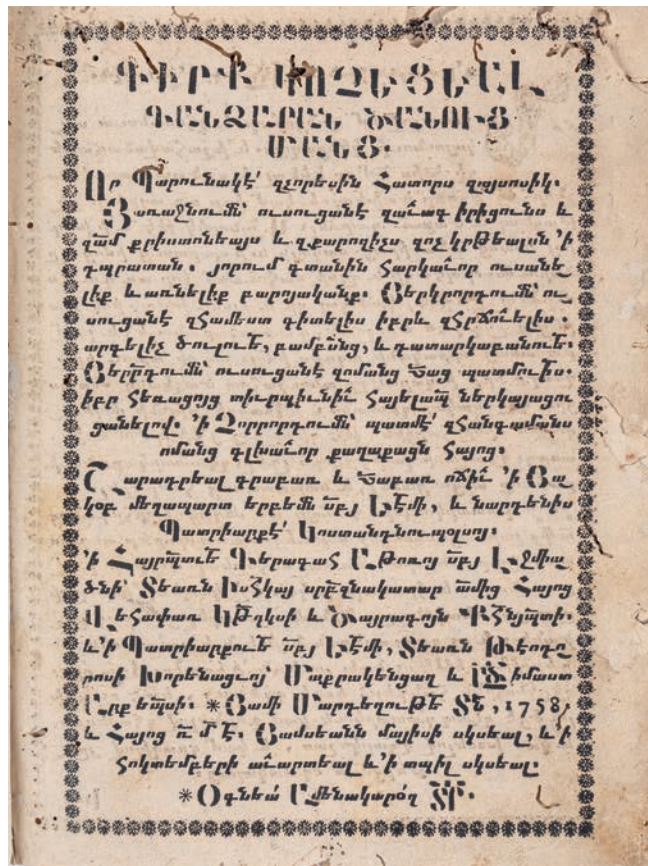 ԳԻՐՔ ԿՈՉԵՑԵԱԼ
ԳԱՆՁԱՐԱՆ ԾԱՆՈՒՑ
ՄԱՆՑ.
Որ Պարունակէ՛ զչորեսին Հատորս զայսոսիկ.
Յառաջնումն՝ ուսուցանէ զաւագ իրիցունս և
զամ քրիստոնեայս և զքարոզիչս զոչ կրթեալսն ՚ի
դպրատան. յորում գտանին հարկաւոր ուսանե_
լիք և առնելիք բարոյականք. Յերկրորդումն՝ ու_
սուցանէ զհամեստ գիտելիս իբրև
արգելիչ ծուլուե, բամբանց, և դատարկաբանուե.
Յերրդումն՝ ուսուցանէ զոմանց ծագ պատմուիս.
իբր հեռացոյց հայելապ ներկայացու
ցանելով. ՚ի Չորրորդումն՝ պատմէ՛ զհանգամանս
ոմանց գլխաւոր քաղաքացն հայոց.
Շարադրեալ գրաբառ և ոճիւ ՚ի Յա_
կօբ մեղապարտ երբեմն սբյ Էէմի, և նարդենիս
Պատրիարքէ՛ Կոստանդնուպօլսոյ.
՚ի Հայրպտուե Աթոռոյ սբյ Էջմիա
ծնի՝ Տեառն սրբզնակատար ամից Հայոց
Վեհափառ Կթղկսի և Ծայրագոյն
և՚ի Պատրիարքուե սբյ Էէմի, Տեառն Թէոդօ
րոսի Խորենացւոյ՝ և իմաստ
Արք եպսի. * Յամի Մարդեղութե Տն, 1758,
և Հայոց Յամսեանն մայիսի սկսեալ, և՚ի
հոկտեմբերի աւարտեալ և՚ի տպիլ սկսեալ.
* Օգնեա՛ Ամենակարօղ